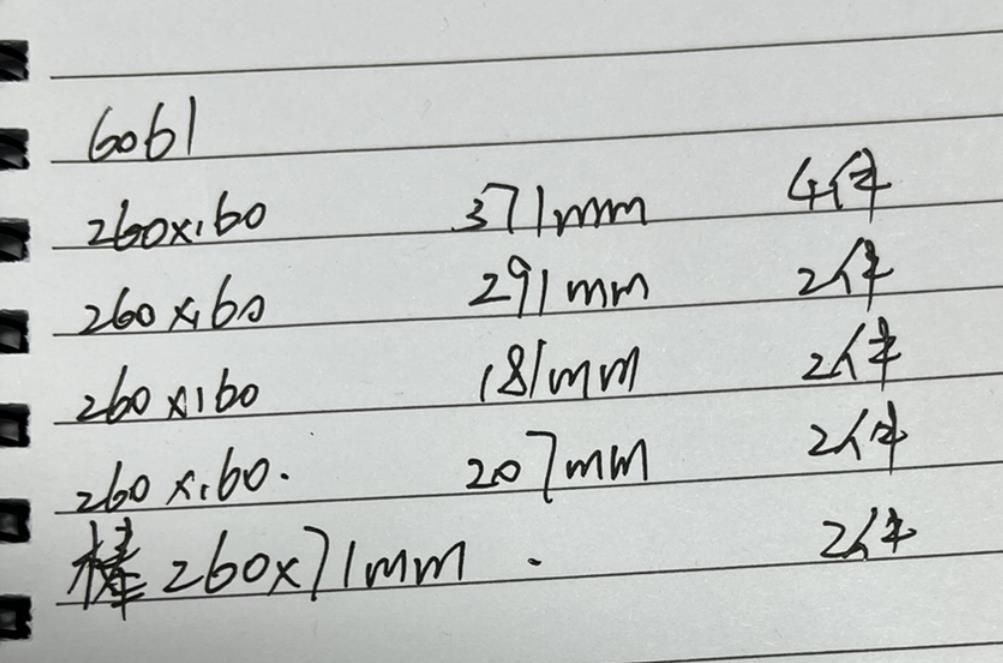 6061
260×160 371mm 4件
260×160 291mm 2件
260×160 181mm 2件
260×160. 207mm 2件
棒260×71mm. 2件